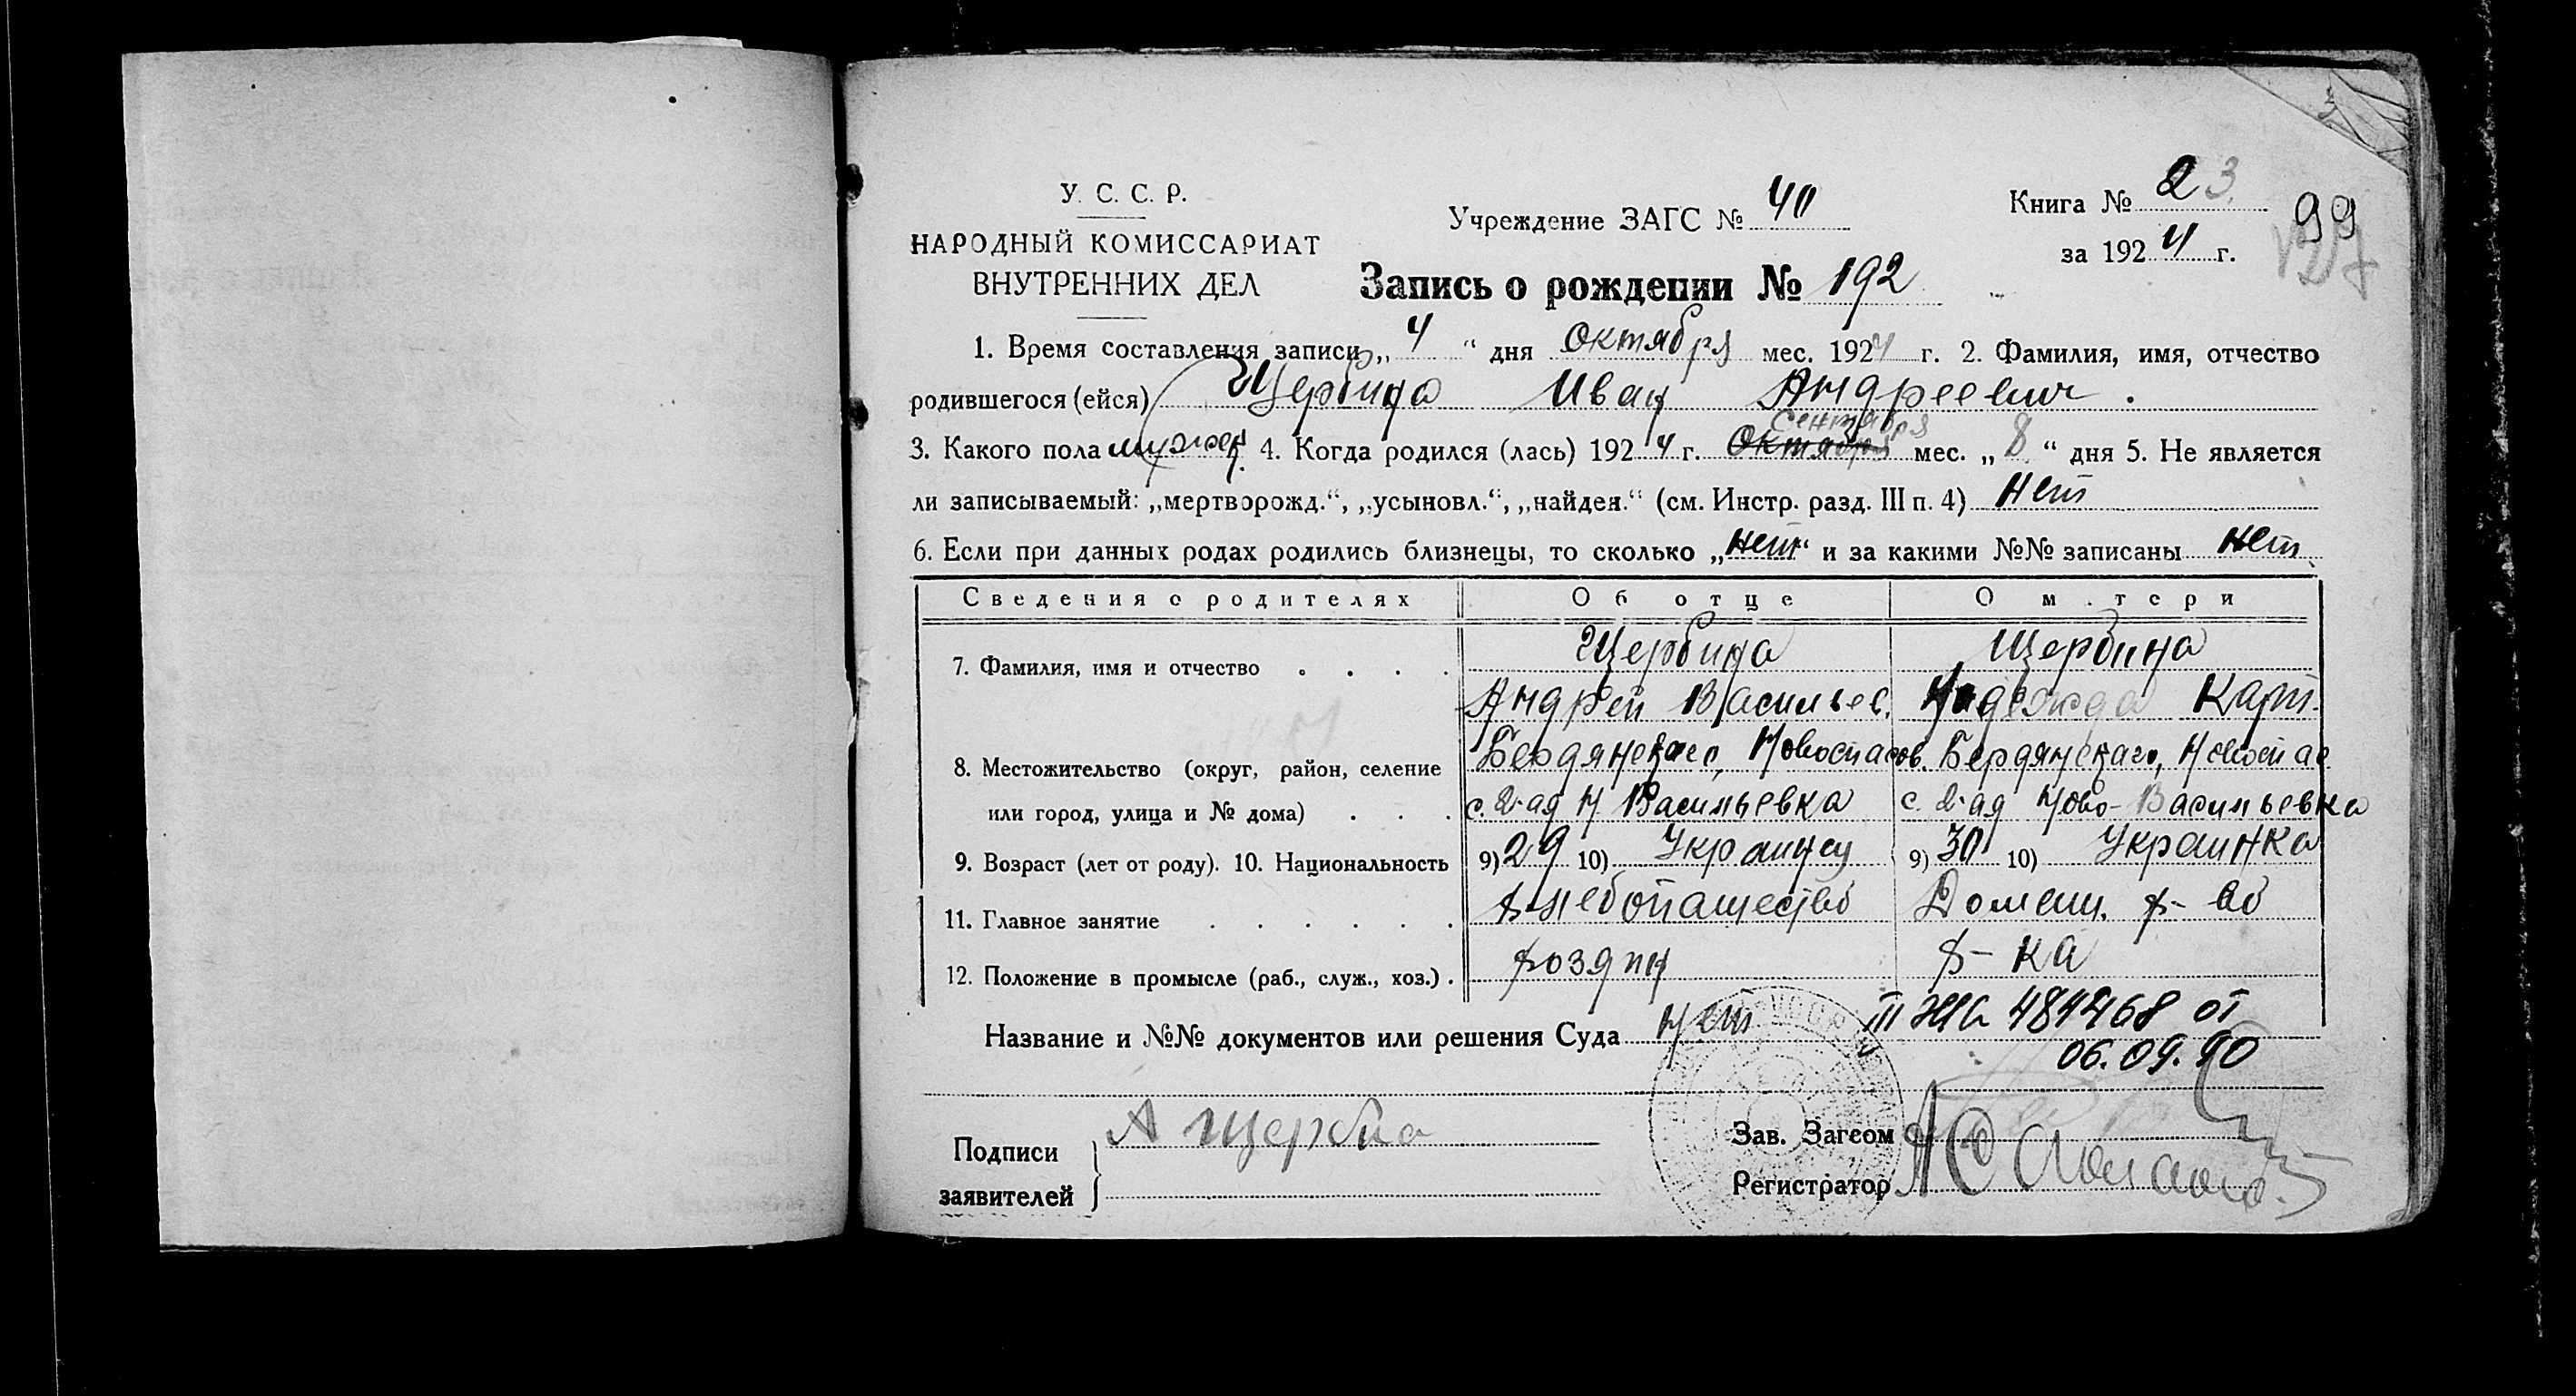 У. С. С. Р.
НАРОДНЫЙ КОМИССАРИАТ
ВНУТРЕННИХ ДЕЛ
Учреждение ЗАГС № 40
Книга № 23
за 1924 г.
99
Запись о рождении № 192
1. Время составления записи „ 4 “ дня Октября мес. 1924 г. 2. Фамилия, имя, отчество
родившегося (ейся) Щербина Иван Андреевич.
Сентября
3. Какого пола мужск. 4. Когда родился (лась) 1924 г. Октября мес. „ 8 “ дня 5. Не является
ли записываемый: „мертворожд.“, „усыновл.“, „найден.“ (см. Инстр. разд. III п. 4) нет
6. Если при данных родах родились близнецы, то сколько „нет“ и за какими №№ записаны нет
Сведения о родителях Об отце О м . тери
Щербина Щербина
7. Фамилия, имя и отчество . . . .
Андрей Васильев. Надежда Карп.
Бердянского, Новоспасов. Бердянскаго, Новоспас
8. Местожительство (округ, район, селение
или город, улица и № дома) . . . с. 2-ая Н. Васильевка с. 2-ая Ново-Васильевка
9. Возраст (лет от роду). 10. Национальность 9) 29 10) Украинец 9) 30 10) Украинка
11. Главное занятие . . . . . . хлебопашество Домашн. х-во
12. Положение в промысле (раб., служ., хоз.) . хозяин х-ка
Название и №№ документов или решения Суда нет
481468 от
06.09.90
Подписи
заявителей
А Щербина
Зав. Загсом
Регистратор